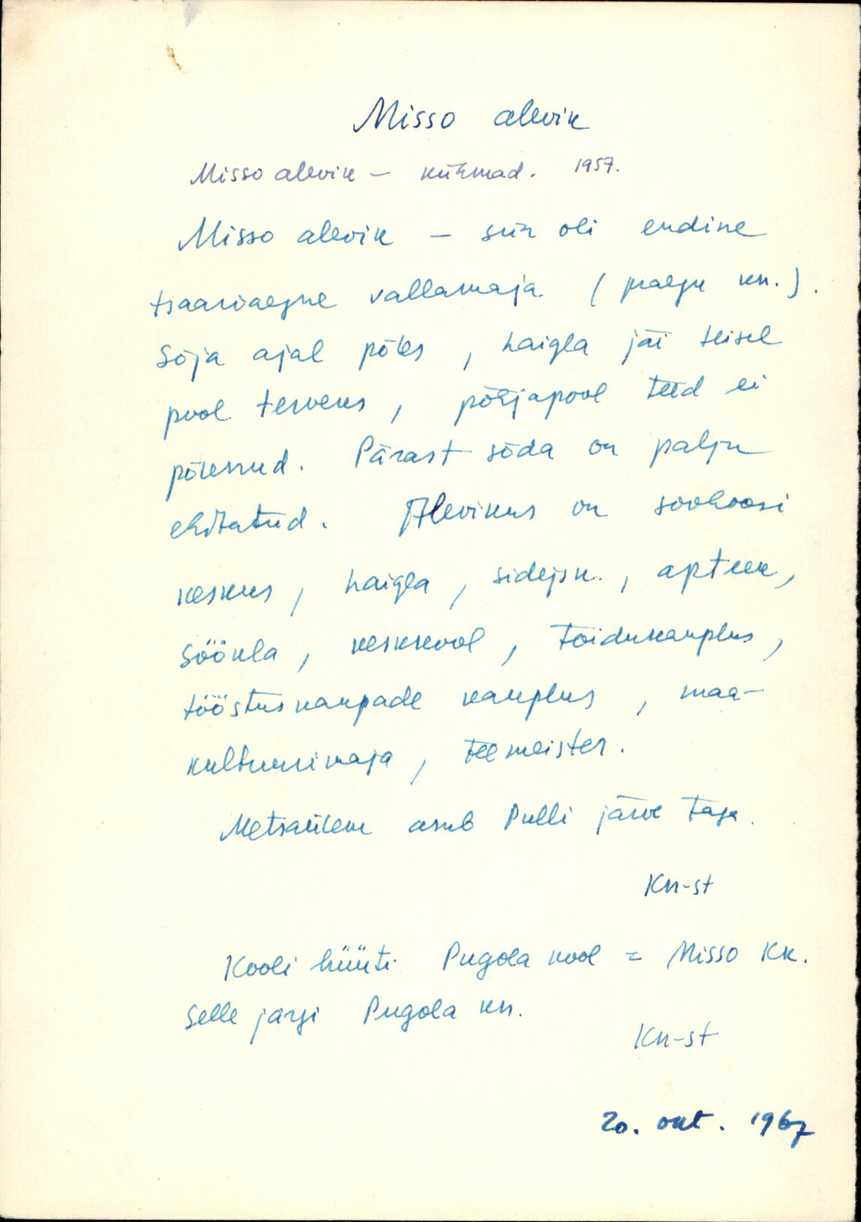 Misso alevik
Misso alevik – kühmad. 1957.
Misso alevik – siin oli endine
tsaariaegne vallamaja (praegu kn.).
Sõja ajal põles, haigla jäi teisel
pool terveks, põhjapool teed ei
põlenud. Pärast sõda on palju
ehitatud. Alevikus on sovhoosi
keskus, haigla, sidejsk., apteek,
söökla, keskkool, toidukauplus,
tööstuskaupade kauplus, maa-
kultuurimaja, teemeister.
Metsaülem asub Pulli järve taga.
Kn-st
Kooli hüüti Pugola kool = Misso Kk.
Selle järgi Pugola kn.
Kn-st
20. okt. 1967